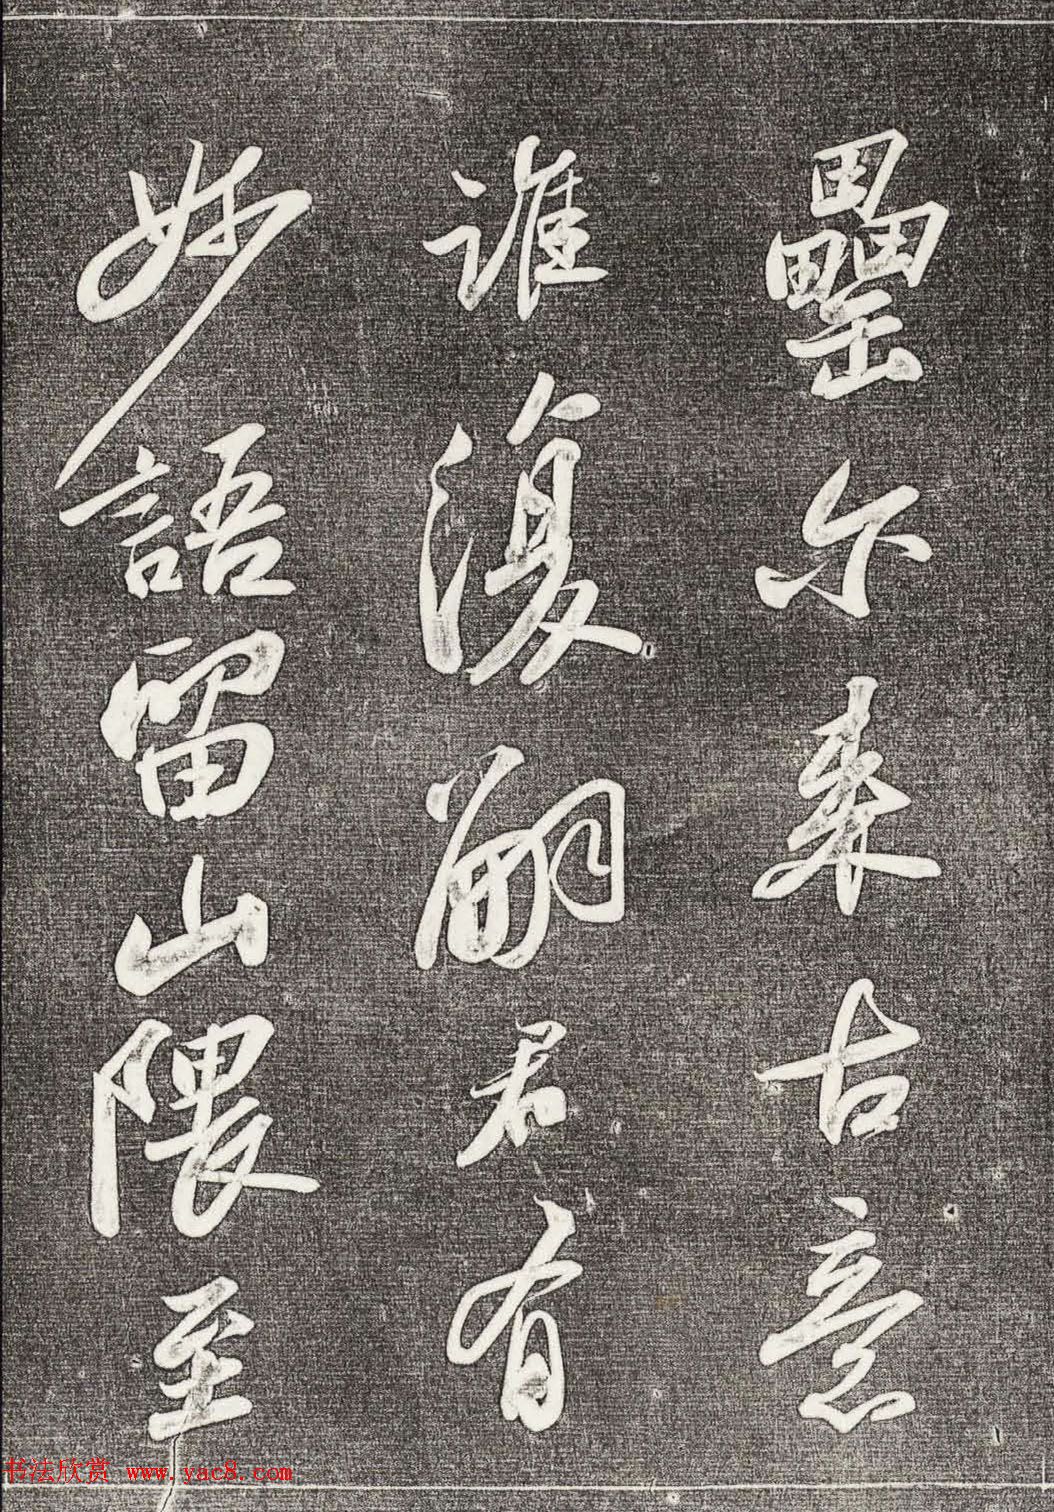 罍尔来古意
誰復嗣君有
妙語留山隈至
书法欣赏 www.yac8.com